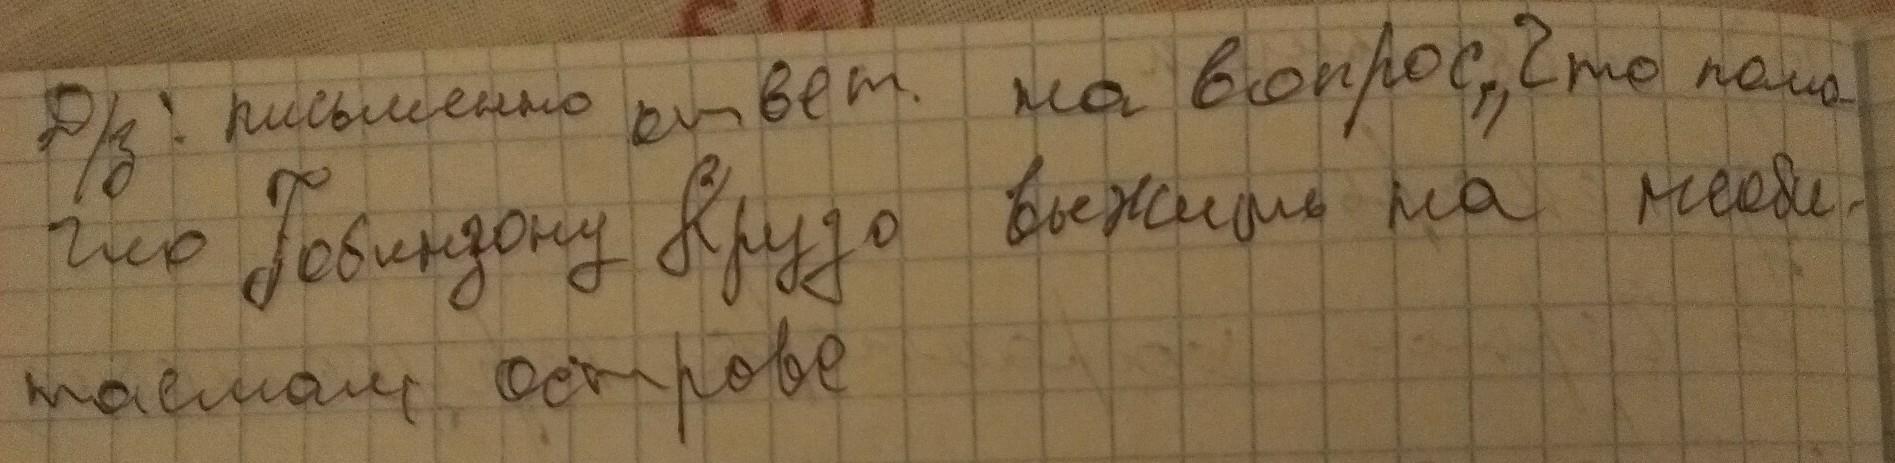 Д/з: письменно ответ. на вопрос „Что помо-
гло Робинзону Крузо выжить на необи-
таемом острове